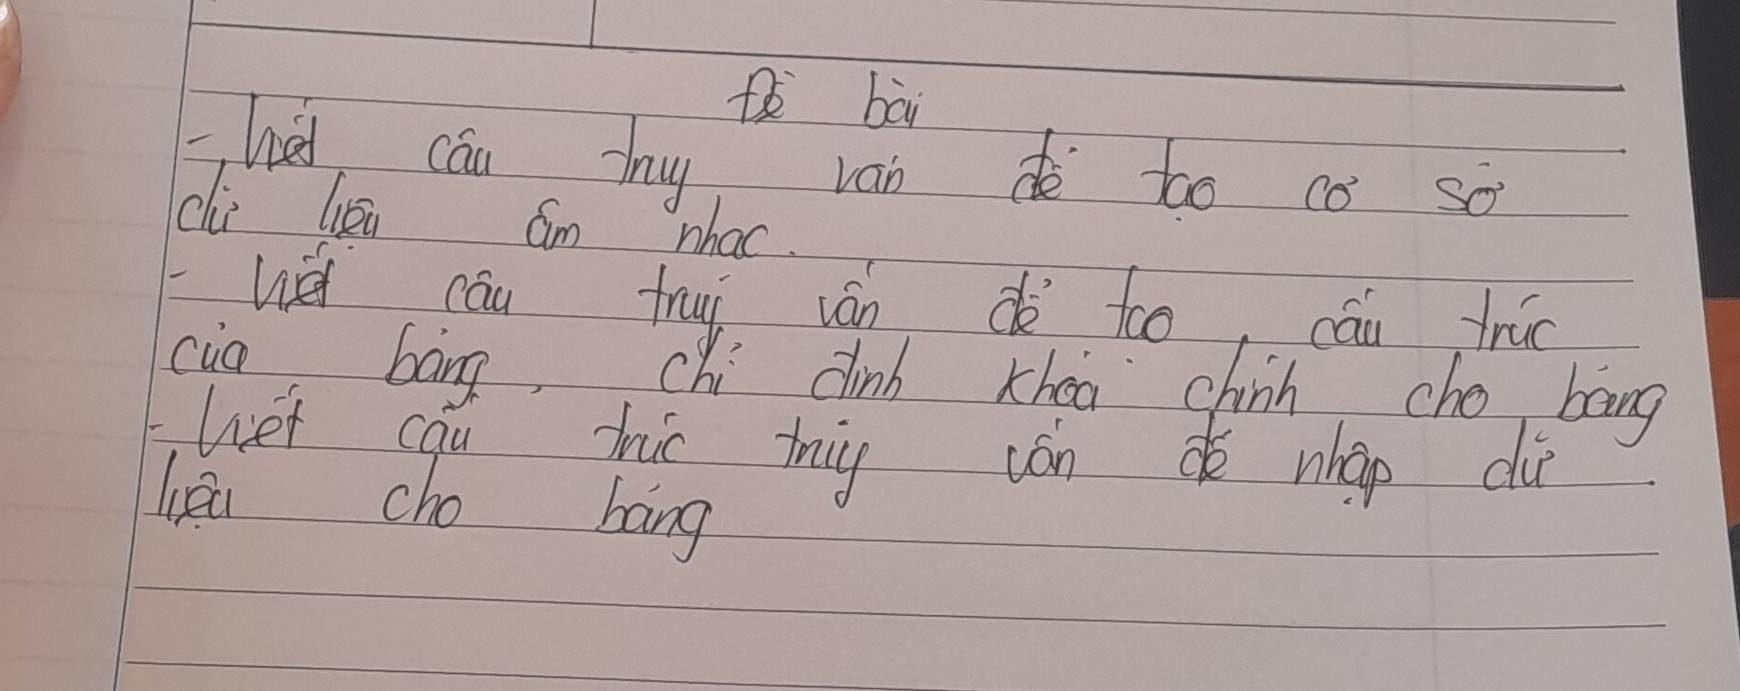 Đề bài
- Viết câu truy vấn để tạo cơ sở
dữ liệu âm nhạc.
- Viết câu truy vấn để tạo cấu trúc
của bảng, chỉ định khóa chính cho bảng
- Viết cấu trúc truy vấn để nhập dữ
liệu cho bảng